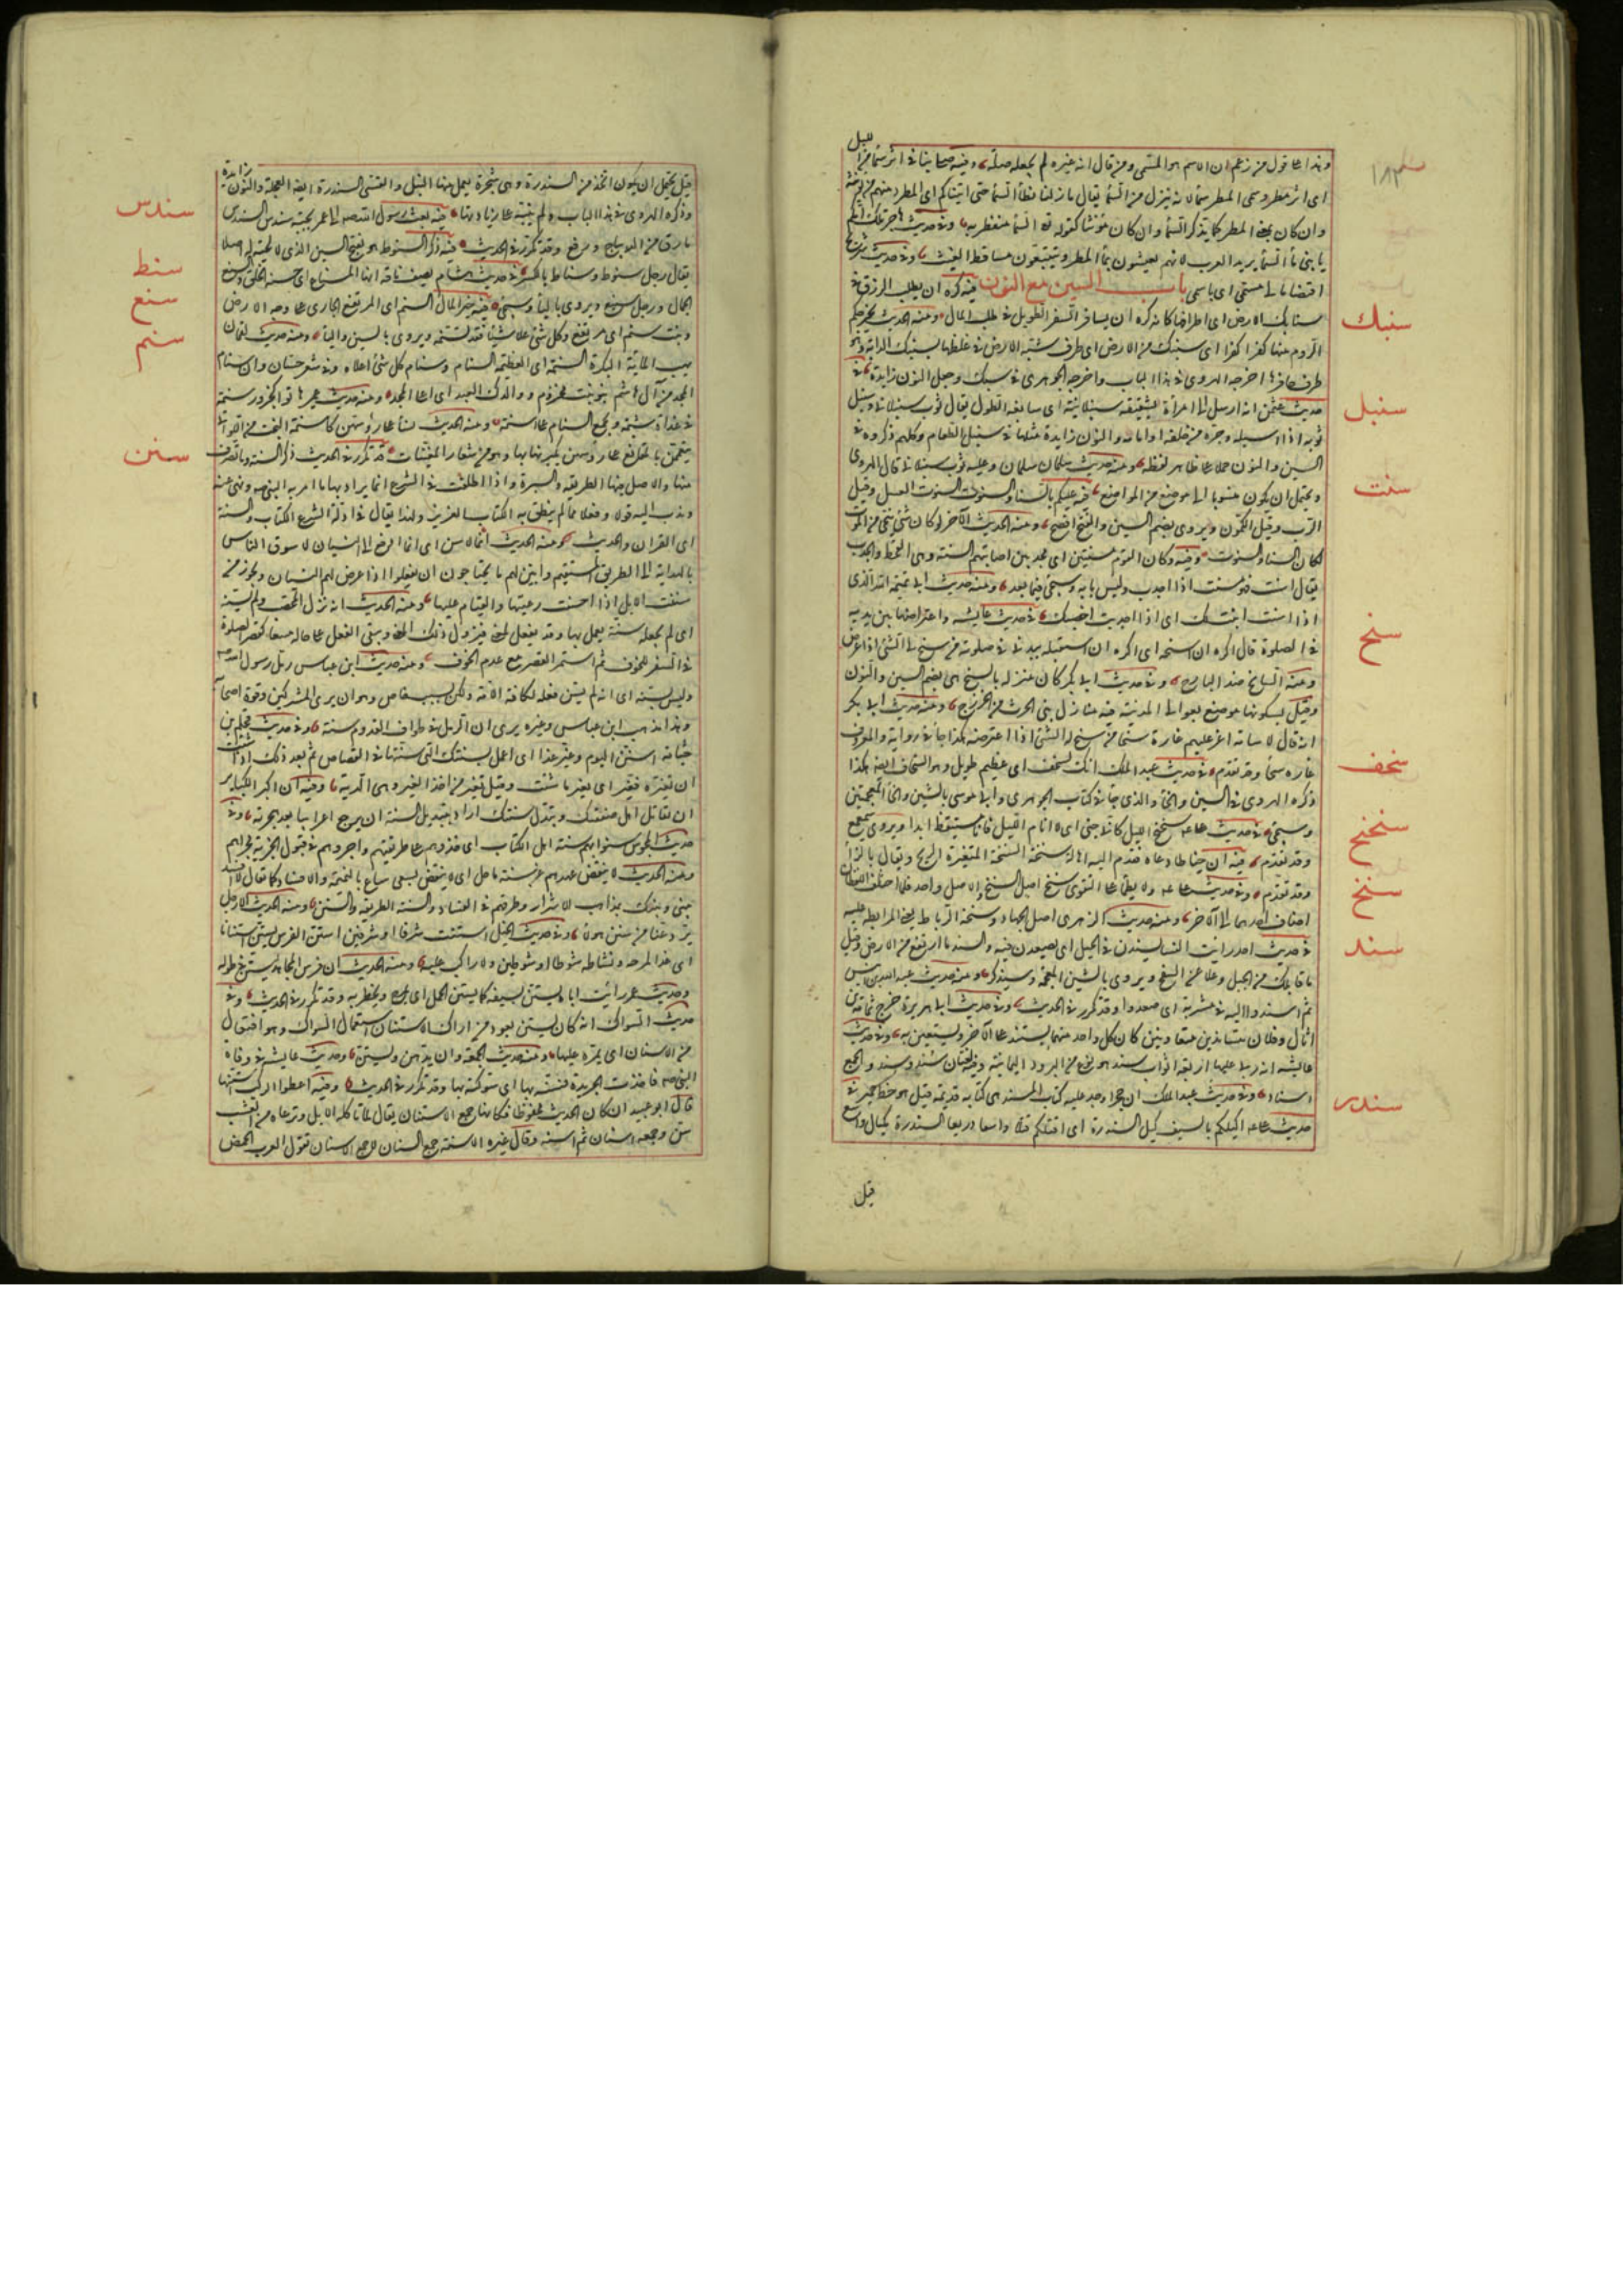 وهذا على قول من زعم ان الاسم هو المسمى ومن قال انه غيره لم يجعله صلة وفيه صلى بنا في اثر سماء من الليل
اى اثر مطر وسمى المطر سماء لانه ينزل من السماء يقال ما زلنا نطأ السماء حتى اتيناكم اى المطر ومنهم من يؤنثه
وان كان بمعنى المطر كما يذكر السماء وان كانت مؤنثا كقوله السماء منفطر به وفى حديث هاجر تلك امكم
يا بنى ماء السماء يريد العرب لانهم يعيشون بماء المطر ويتبعون مساقط الغيث وفى حديث شريح
اقتضا مالى مسمى اى باسمى باب السين مع النون فيه كره ان يطلب الرزق فى
سنابك الارض اى اطرافها كانه كره ان يسافر السفر الطويل فى طلب المال ومنه الحديث تخرجكم
الروم منها كفرا كفرا الى سنبك من الارض اى طرف شبه الارض فى غلظها بسنبك الدابة وهو
طرف حافرها اخرجه الهروى فى هذا الباب واخرجه الجوهرى فى سبك وجعل النون زايدة فى
حديث عثمن انه ارسل الى امرأة بشقيقة سنبلانية اى سابغة الطول يقال ثوب سنبلانى وسنبل
ثوبه اذا اسبله وجره من خلفه او امامه والنون زايدة مثلها فى سنبل الطعام وكلهم ذكروه فى
السين والنون حملا على ظاهر لفظه ومنه حديث سلمان وعليه ثوب سنبلانى قال الهروى
ويحتمل ان يكون منسوبا الى موضع من المواضع فيه عليكم بالسنا والسنوت السنوت العسل وقيل
الرب وقيل الكمون ويروى بضم السين والفتح افصح ومنه الحديث الآخر لو كان شئ ينجى من الموت
لكان السنا والسنوت وفيه وكان القوم مسنتين اى مجدبين اصابتهم السنة وهى القحط والجدب
يقال اسنت فهو مسنت اذا اجدب وليس بابه وسيجئ فيما بعد ومنه حديث ابى تميمة الله الذى
اذا اسنت انبت لك اى اذا اجدبت اخصبك فى حديث عايشة واعتراضها بين يديه
فى الصلوة قالت اكره ان اسنحه اى اكره ان استقبله ببدنى فى صلوته من سنح لى الشئ اذا عرض
ومنه السانح ضد البارح وفى حديث ابى بكر كان منزله بالسنح هى بضم السين والنون
وقيل بسكونها موضع بعوالى المدينة فيه منازل بنى الحرث من الخزرج ومنه حديث ابى بكر
انه قال لاسامة اغر عليهم غارة سنحا من سنح له الشئ اذا اعترضه هكذا جاء فى رواية والمعروف
غارة سحا وقد تقدم فى حديث عبد الملك انك لسنحف اى عظيم طويل وهو السنحاف ايضا هكذا
ذكره الهروى فى السين والحاء والذى جاء فى كتاب الجوهرى وابى موسى بالشين والخاء المعجمتين
وسيجئ فى حديث على سنحنح الليل كانى جنى اى لا انام الليل فانا متيقظ ابدا ويروى سمعمع
وقد تقدم فيه ان خياطا دعاه فقدم اليه اهالة سنخة السنخة المتغيرة الريح ويقال بالزاء
وقد تقدم وفى حديث على ولا يظمأ على التقوى سنخ اصل السنخ والاصل واحد فلما اختلف اللفظان
اضاف احدهما الى الآخر ومنه حديث الزهرى اصل الجهاد وسنخه الرباط يعنى المرابطة عليه
فى حديث احد رأيت النساء يسندن فى الجبل اى يصعدن فيه والسند ما ارتفع من الارض وقيل
ما قابلك من الجبل وعلا عن السفح ويروى بالشين المعجمة وسيذكر ومنه حديث عبد الله بن انيس
ثم اسندوا اليه فى مشربة اى صعدوا وقد تكرر فى الحديث وفى حديث ابى هريرة خرج ثمامة بن
اثال وفلان متساندين متعاونين كان كل واحد منهما يستند على الآخر ويستعين به وفى حديث
عايشة انه رئى عليها اربعة اثواب سند هو نوع من البرود اليمانية وفيه لغتان سند وسند والجمع
اسناد وفى حديث عبد الملك ان حجرا وجد عليه كتاب بالمسند هى كتابة قديمة قيل هو خط حمير فى
حديث على اكيلكم بالسيف كيل السندرة اى اقتلكم قتلا واسعا ذريعا السندرة مكيال واسع
قيل
سنبك
سنبل
سنت
سنح
سنحف
سنحنح
سنخ
سند
سندر
قيل يحتمل ان يكون اتخذ من السندرة وهى شجرة يعمل منها النبل والقسى والسندرة ايضا العجلة والنون زايدة
وذكره الهروى فى هذا الباب ولم ينبه على زيادتها فيه بعث رسول الله صلعم الى عمر بجبة سندس السندس
ما رق من الديباج ورفع وقد تكرر فى الحديث فيه ذكر السنوط هو بفتح السين الذى لا لحية له اصلا
يقال رجل سنوط وسناط بالكسر فى حديث هشام يصف ناقة انها لمسناع اى حسنة الخلق والسنع
الجمال ورجل سنيع ويروى بالياء وسيجئ فيه خير المال السنم اى المرتفع الجارى على وجه الارض
ونبت سنم اى مرتفع وكل شئ علا شيئا فقد تسنمه ويروى بالشين والباء ومنه حديث لقمان
يهب المائة البكرة السنمة اى العظيمة السنام وسنام كل شئ اعلاه وفى شعر حسان وان سنام
المجد من آل هاشم بنو بنت مخزوم ووالدك العبد اى اعلى المجد ومنه حديث عمير هاتوا كجزور سنمة
فى غداة شبمة ويجمع السنام على اسنمة ومنه الحديث نساء على رؤسهن كاسنمة البخت هن اللواتى
يتعممن بالمقانع على رؤسهن يكبرنها بها وهو من شعار المغنيات قد تكرر فى الحديث ذكر السنة وما تصرف
منها والاصل فيها الطريقة والسيرة واذا اطلقت فى الشرع انما يراد بها ما امر به النبى صلعم ونهى عنه
وندب اليه قولا وفعلا مما لم ينطق به الكتاب العزيز ولهذا يقال فى ادلة الشرع الكتاب والسنة
اى القران والحديث ومنه الحديث انما اسن اى انما ادفع الى النسيان لاسوق الناس
بالهداية الى الطريق المستقيم وابين لهم ما يحتاجون ان يفعلوا اذا عرض لهم النسيان ويجوز من
سننت الابل اذا احسنت رعيتها والقيام عليها ومنه الحديث انه نزل المحصب ولم يسنه
اى لم يجعله سنة يعمل بها وقد يفعل لمعنى فيزول ذلك المعنى ويبقى الفعل على حاله متبعا كقصر الصلوة
فى السفر للخوف ثم استمر القصر مع عدم الخوف ومنه حديث ابن عباس رمل رسول الله
وليس بسنة اى انه لم يسن فعله لكافة الامة ولكن لسبب خاص وهو ان يرى المشركين قوة اصحابه
وهذا مذهب ابن عباس وغيره يرى ان الرمل فى طواف القدوم سنة وفى حديث محلم بن
جثامة اسنن اليوم وغير غدا اى اعمل بسنتك التى سننتها فى القصاص ثم بعد ذلك اذا شئت
ان تغير فغير اى تغير ما سننت وقيل تغير من اخذ الغير وهى الدية وفيه ان اكبر الكبائر
ان تقاتل اهل صفقتك وتبدل سنتك اراد بتبديل السنة ان يرجع اعرابيا بعد هجرته وفى
حديث المجوس سنوا بهم سنة اهل الكتاب اى خذوهم على طريقتهم واجروهم فى قبول الجزية مجراهم
ومنه الحديث لا ينقض عهدهم عن سنة ماحل اى لا ينقض بسعى ساع بالنميمة والافساد كما يقال لا افسد
بينى وبينك بمذاهب الاشرار وطرقهم فى الفساد والسنة الطريقة والسنن ومنه الحديث الا رجل
يرد عنا من سنن هؤلاء وفى حديث الخيل استنت شرفا او شرفين استن الفرس يستن استنانا
اى عدا لمرحه ونشاطه شوطا او شوطين ولا راكب عليه ومنه الحديث ان فرس المجاهد ليستن فى طوله
وحديث عمر رأيت اباه يستن بسيفه كما يستن الجمل اى يمرح ويخطر به وقد تكرر فى الحديث وفى
حديث السواك انه كان يستن بعود من اراك الاستنان استعمال السواك وهو افتعال
من الاسنان اى يمره عليها ومنه حديث الجمعة وان يدهن ويستن وحديث عايشة فى وفاة
النبى صلعم فاخذت الجريدة فسننته بها اى سوكته بها وقد تكرر فى الحديث وفيه اعطوا الركب اسنتها
قال ابو عبيد ان كان الحديث محفوظا فكانها جمع الاسنان يقال لما تاكله الابل وترعاه من العشب
سن وجمعه اسنان ثم اسنة وقال غيره الاسنة جمع السنان لا جمع الاسنان تقول العرب الحمض
سندس
سنط
سنع
سنم
سنن